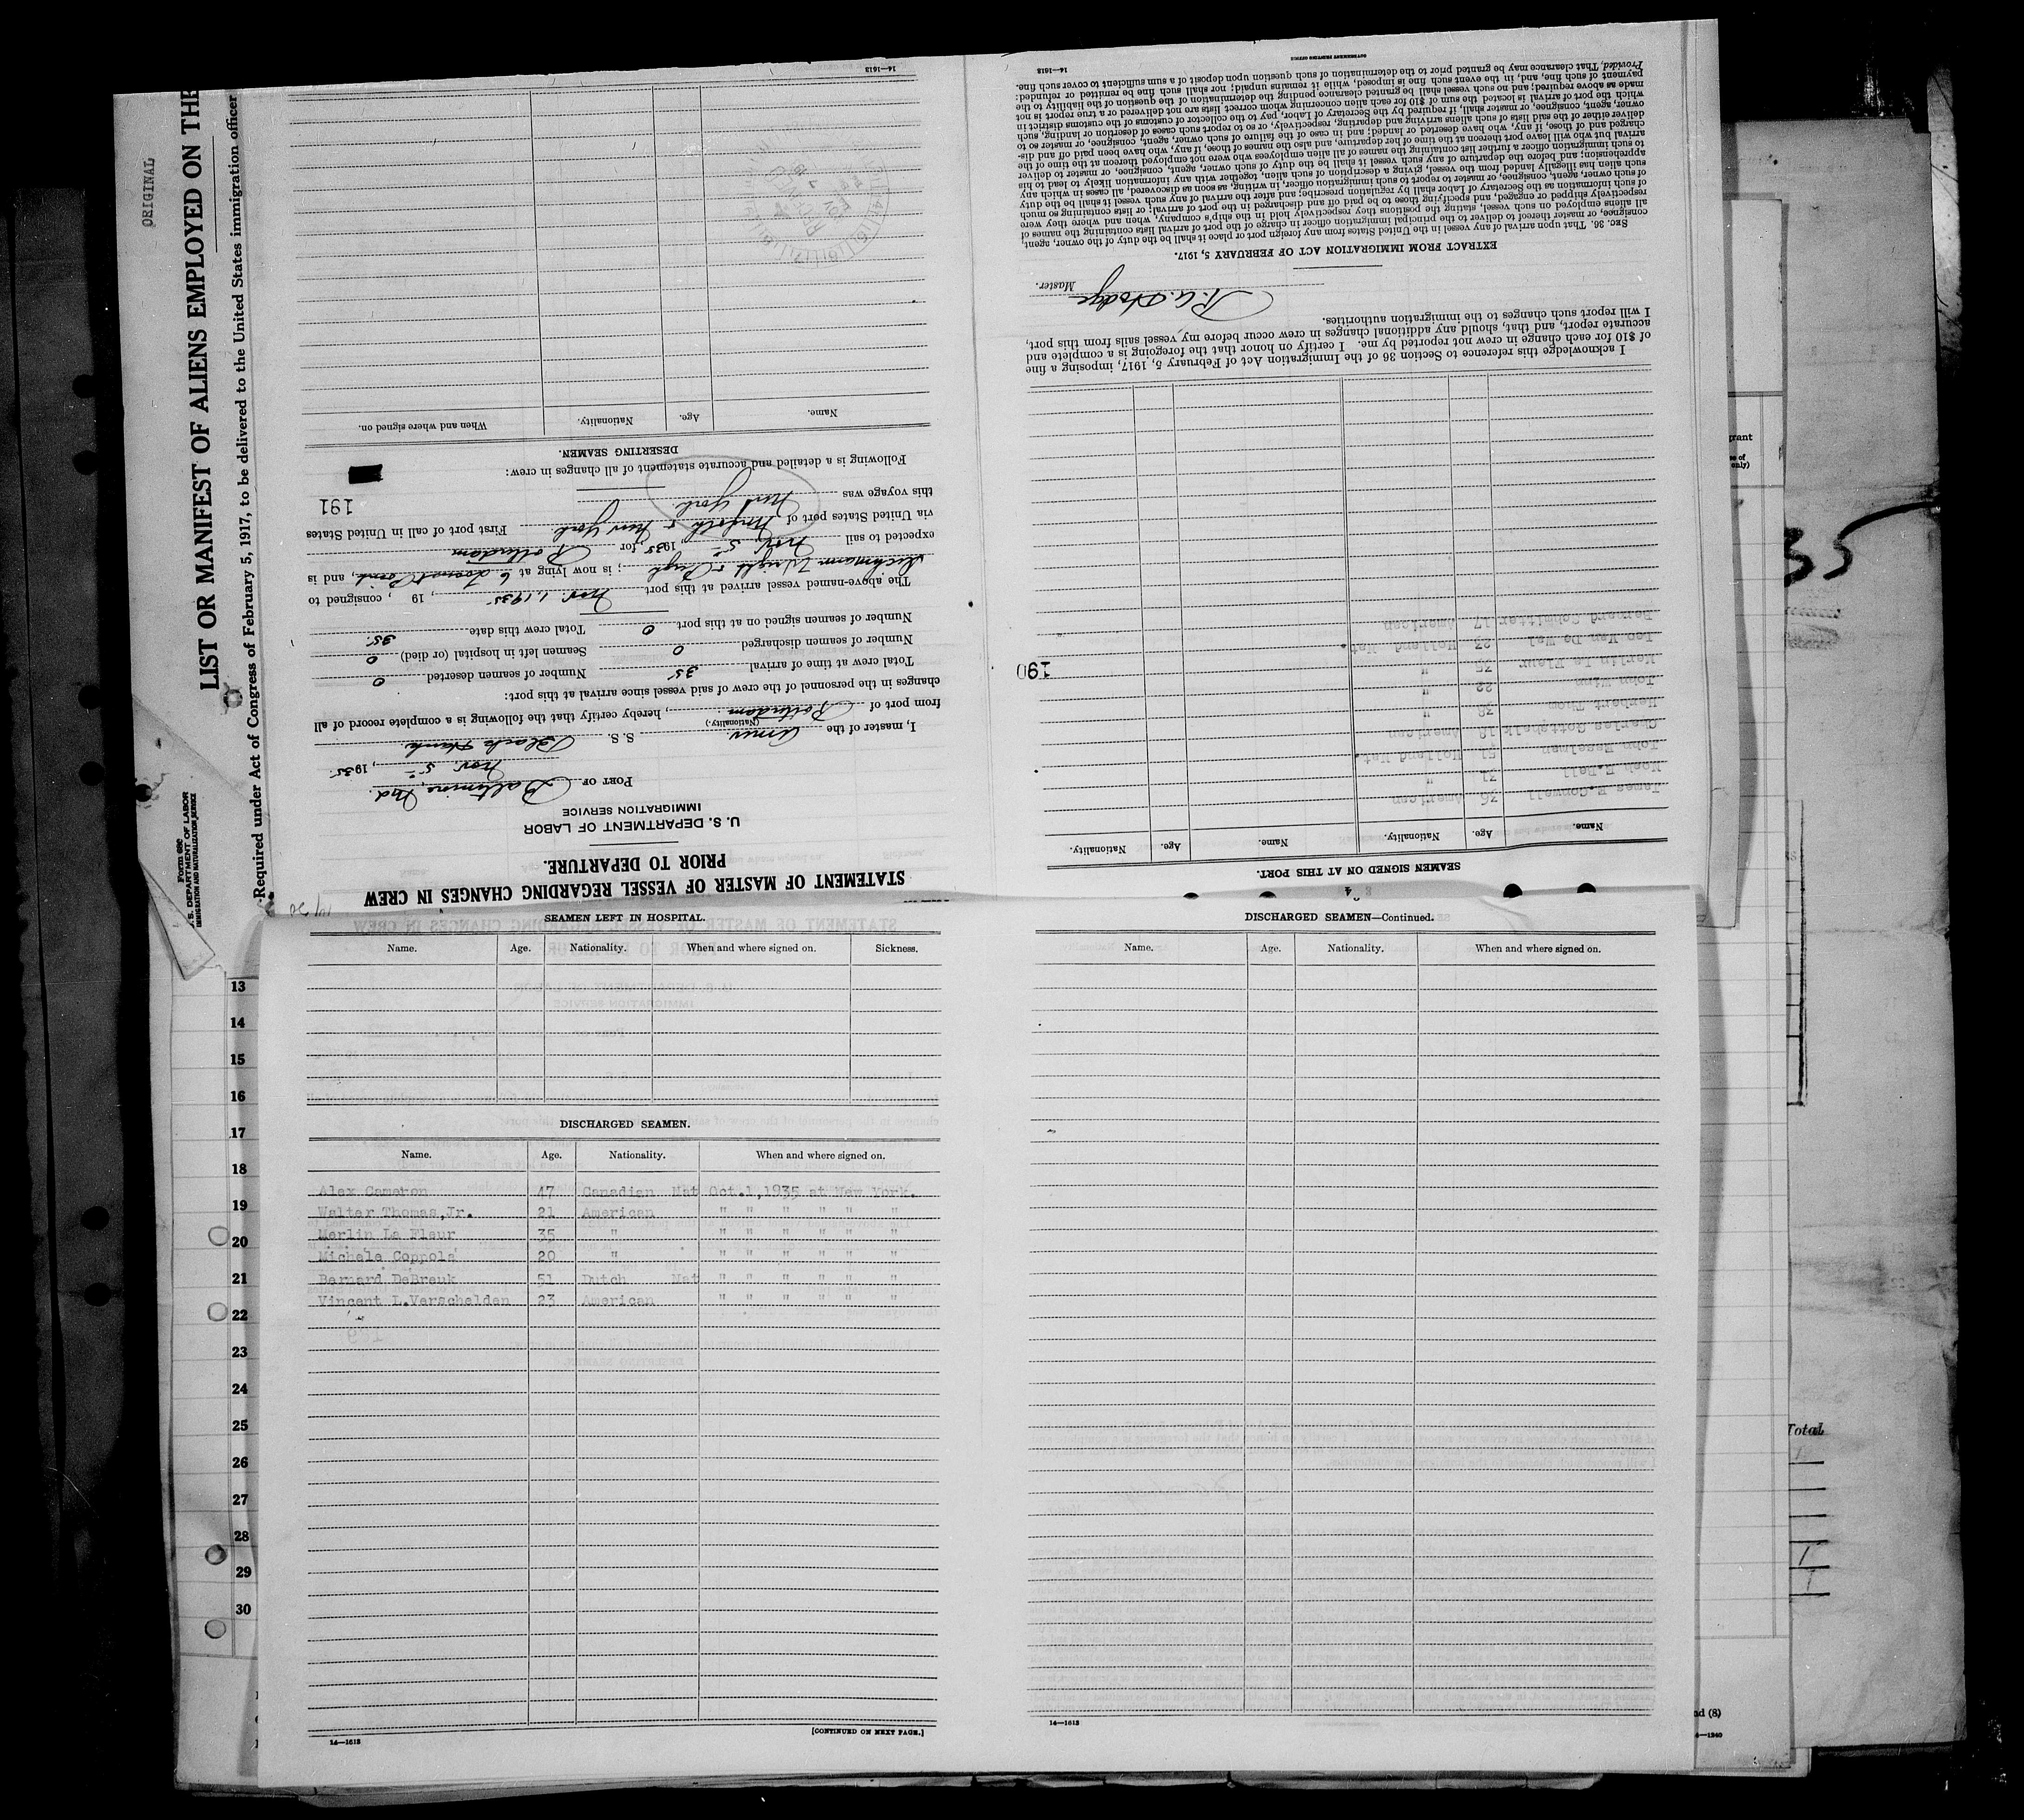 ORIGINAL
LIST OR MANIFEST OF ALIENS EMPLOYED ON THE
Required under Act of Congress of February 5, 1917, to be delivered to the United States immigration officer
Form 680
U.S. DEPARTMENT OF LABOR
IMMIGRATION AND NATURALIZATION SERVICE
STATEMENT OF MASTER OF VESSEL REGARDING CHANGES IN CREW
PRIOR TO DEPARTURE.
U. S. DEPARTMENT OF LABOR
IMMIGRATION SERVICE
PORT OF Baltimore, Md.
Nov. 5, 1935
I, master of the Amer S. S. Black Hawk
(Nationality.)
from port of Rotterdam, hereby certify that the following is a complete record of all
changes in the personnel of the crew of said vessel since arrival at this port:
Total crew at time of arrival 35 Number of seamen deserted 0
Number of seamen discharged 0 Seamen left in hospital (or died) 0
Number of seamen signed on at this port 0 Total crew this date 35
The above-named vessel arrived at this port Nov. 1, 1935, 19 , consigned to
Wright & ; is now lying at 6 Locust Point, and is
expected to sail Nov. 5, 1935, for Rotterdam
via United States port of Norfolk & New York First port of call in United States
this voyage was New York
191
Following is a detailed and accurate statement of all changes in crew:
DESERTING SEAMEN.
Name. Age. Nationality. When and where signed on.
14—1613
SEAMEN SIGNED ON AT THIS PORT.
Name. Age. Nationality. Name. Age. Nationality.
James E. Conwell 36 American
Noah E. Bell 31 "
John Esselman 51 Holland Nat.
Charles Gottshalk 18 American
Herbert Thom 38 "
John Winn 22 "
Merlin La Fleur 35 "
Leo Van De Wal 23 Holland Nat.
Bernard Schmitter 17 American
190
I acknowledge this reference to Section 36 of the Immigration Act of February 5, 1917, imposing a fine
of $10 for each change in crew not reported by me. I certify on honor that the foregoing is a complete and
accurate report, and that, should any additional changes in crew occur before my vessel sails from this port,
I will report such changes to the immigration authorities.
Master.
EXTRACT FROM IMMIGRATION ACT OF FEBRUARY 5, 1917.
SEC. 36. That upon arrival of any vessel in the United States from any foreign port or place it shall be the duty of the owner, agent,
consignee, or master thereof to deliver to the principal immigration officer in charge of the port of arrival lists containing the names of
all aliens employed on such vessel, stating the positions they respectively hold in the ship's company, when and where they were
respectively shipped or engaged, and specifying those to be paid off and discharged in the port of arrival; or lists containing so much
of such information as the Secretary of Labor shall by regulation prescribe; and after the arrival of any such vessel it shall be the duty
of such owner, agent, consignee, or master to report to such immigration officer, in writing, as soon as discovered, all cases in which any
such alien has illegally landed from the vessel, giving a description of such alien, together with any information likely to lead to his
apprehension; and before the departure of any such vessel it shall be the duty of such owner, agent, consignee, or master to deliver
to such immigration officer a further list containing the names of all alien employees who were not employed thereon at the time of the
arrival but who will leave port thereon at the time of her departure, and also the names of those, if any, who have been paid off and dis-
charged and of those, if any, who have deserted or landed; and in case of the failure of such owner, agent, consignee, or master so to
deliver either of the said lists of such aliens arriving and departing, respectively, or so to report such cases of desertion or landing, such
owner, agent, consignee, or master shall, if required by the Secretary of Labor, pay to the collector of customs of the customs district in
which the port of arrival is located the sum of $10 for each alien concerning whom correct lists are not delivered or a true report is not
made as above required; and no such vessel shall be granted clearance pending the determination of the question of the liability to the
payment of such fine, and, in the event such fine is imposed, while it remains unpaid; nor shall such fine be remitted or refunded:
Provided, That clearance may be granted prior to the determination of such question upon deposit of a sum sufficient to cover such fine.
14—1613
GOVERNMENT PRINTING OFFICE
SEAMEN LEFT IN HOSPITAL.
Name. Age. Nationality. When and where signed on. Sickness.
DISCHARGED SEAMEN.
Name. Age. Nationality. When and where signed on.
Alex Cameron 47 Canadian Nat Oct.1,1935 at New York.
Walter Thomas,Jr. 21 American " " " " " "
Merlin La Fleur 35 " " " " " " "
Michele Coppola 20 " " " " " " "
Bernard DeBreuk 51 Dutch Nat " " " " " "
Vincent L.Verschelden 23 American " " " " " "
[CONTINUED ON NEXT PAGE.]
14—1613
DISCHARGED SEAMEN—Continued.
Name. Age. Nationality. When and where signed on.
14—1613
13
14
15
16
17
18
19
20
21
22
23
24
25
26
27
28
29
30
35
Total